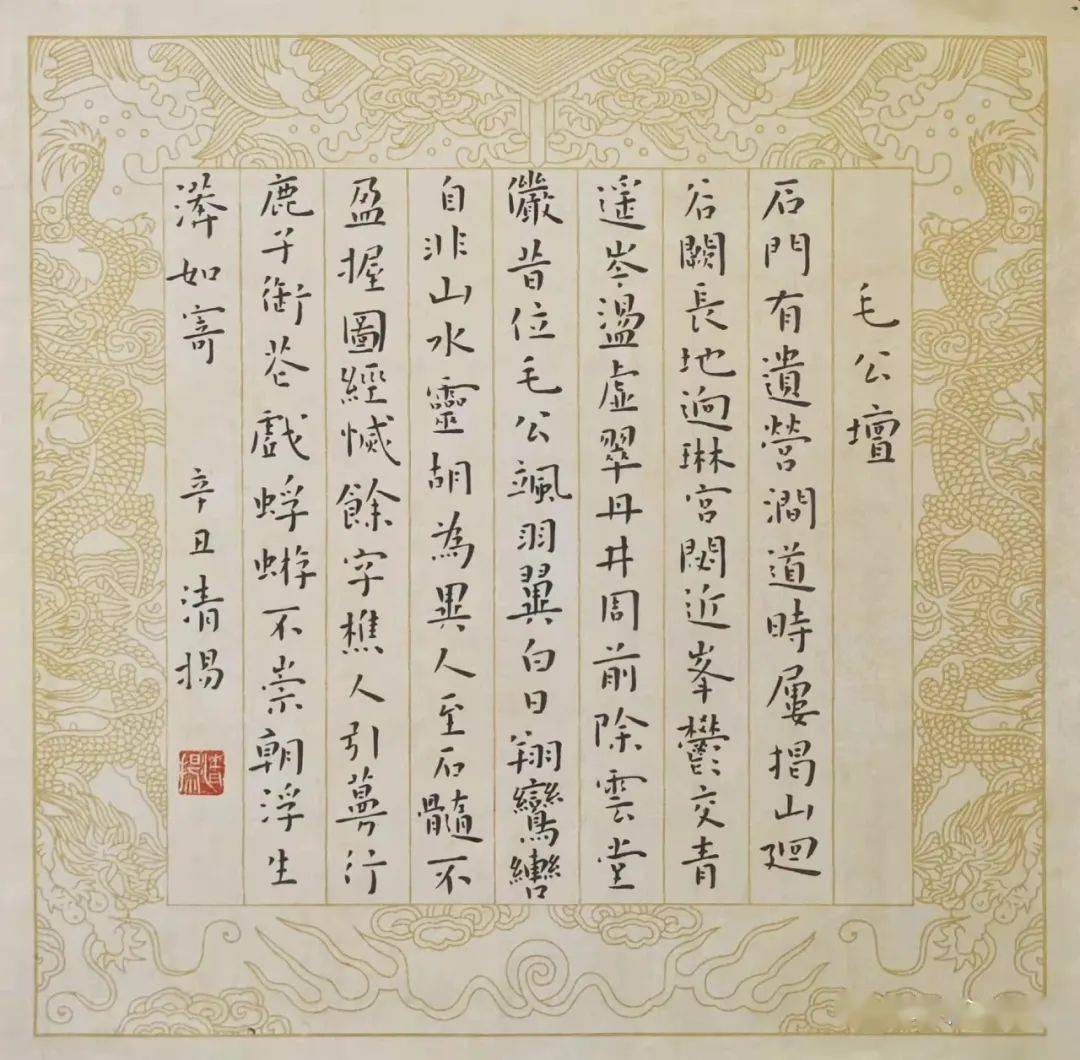 毛公壇
石門有遺營澗道時屢揭山迴
谷闕長地逈琳宮閟近峯鬱交青
遥岑盪虛翠丹井周前除雲堂
儼昔位毛公颯羽翼白日翔鸞轡
自非山水靈胡為異人至石髓不
盈握圖經餘字樵人引行
鹿子銜花戲蜉蝣不崇朝浮生
如寄 辛丑清揚
清揚